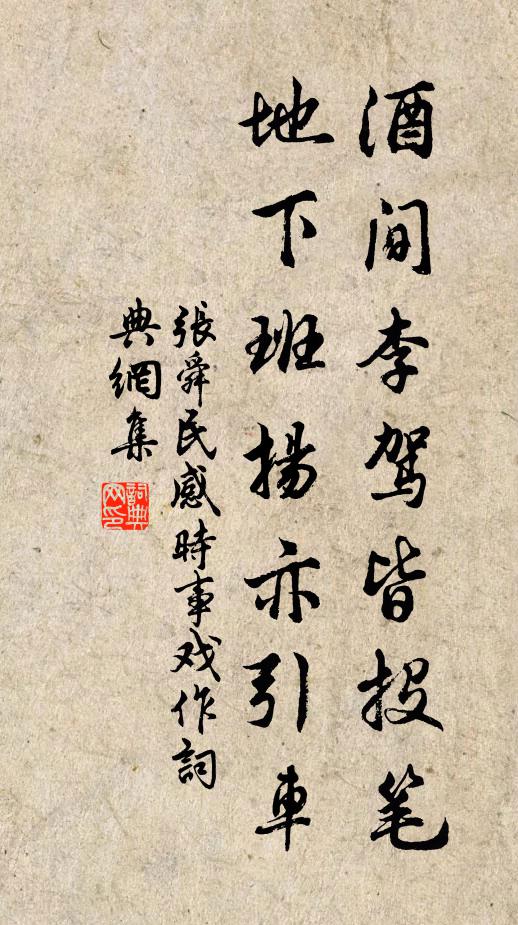 酒间李驾皆投笔
地下班揚亦引車
張舜民感時事戏作詞
典網集
詞典
网印